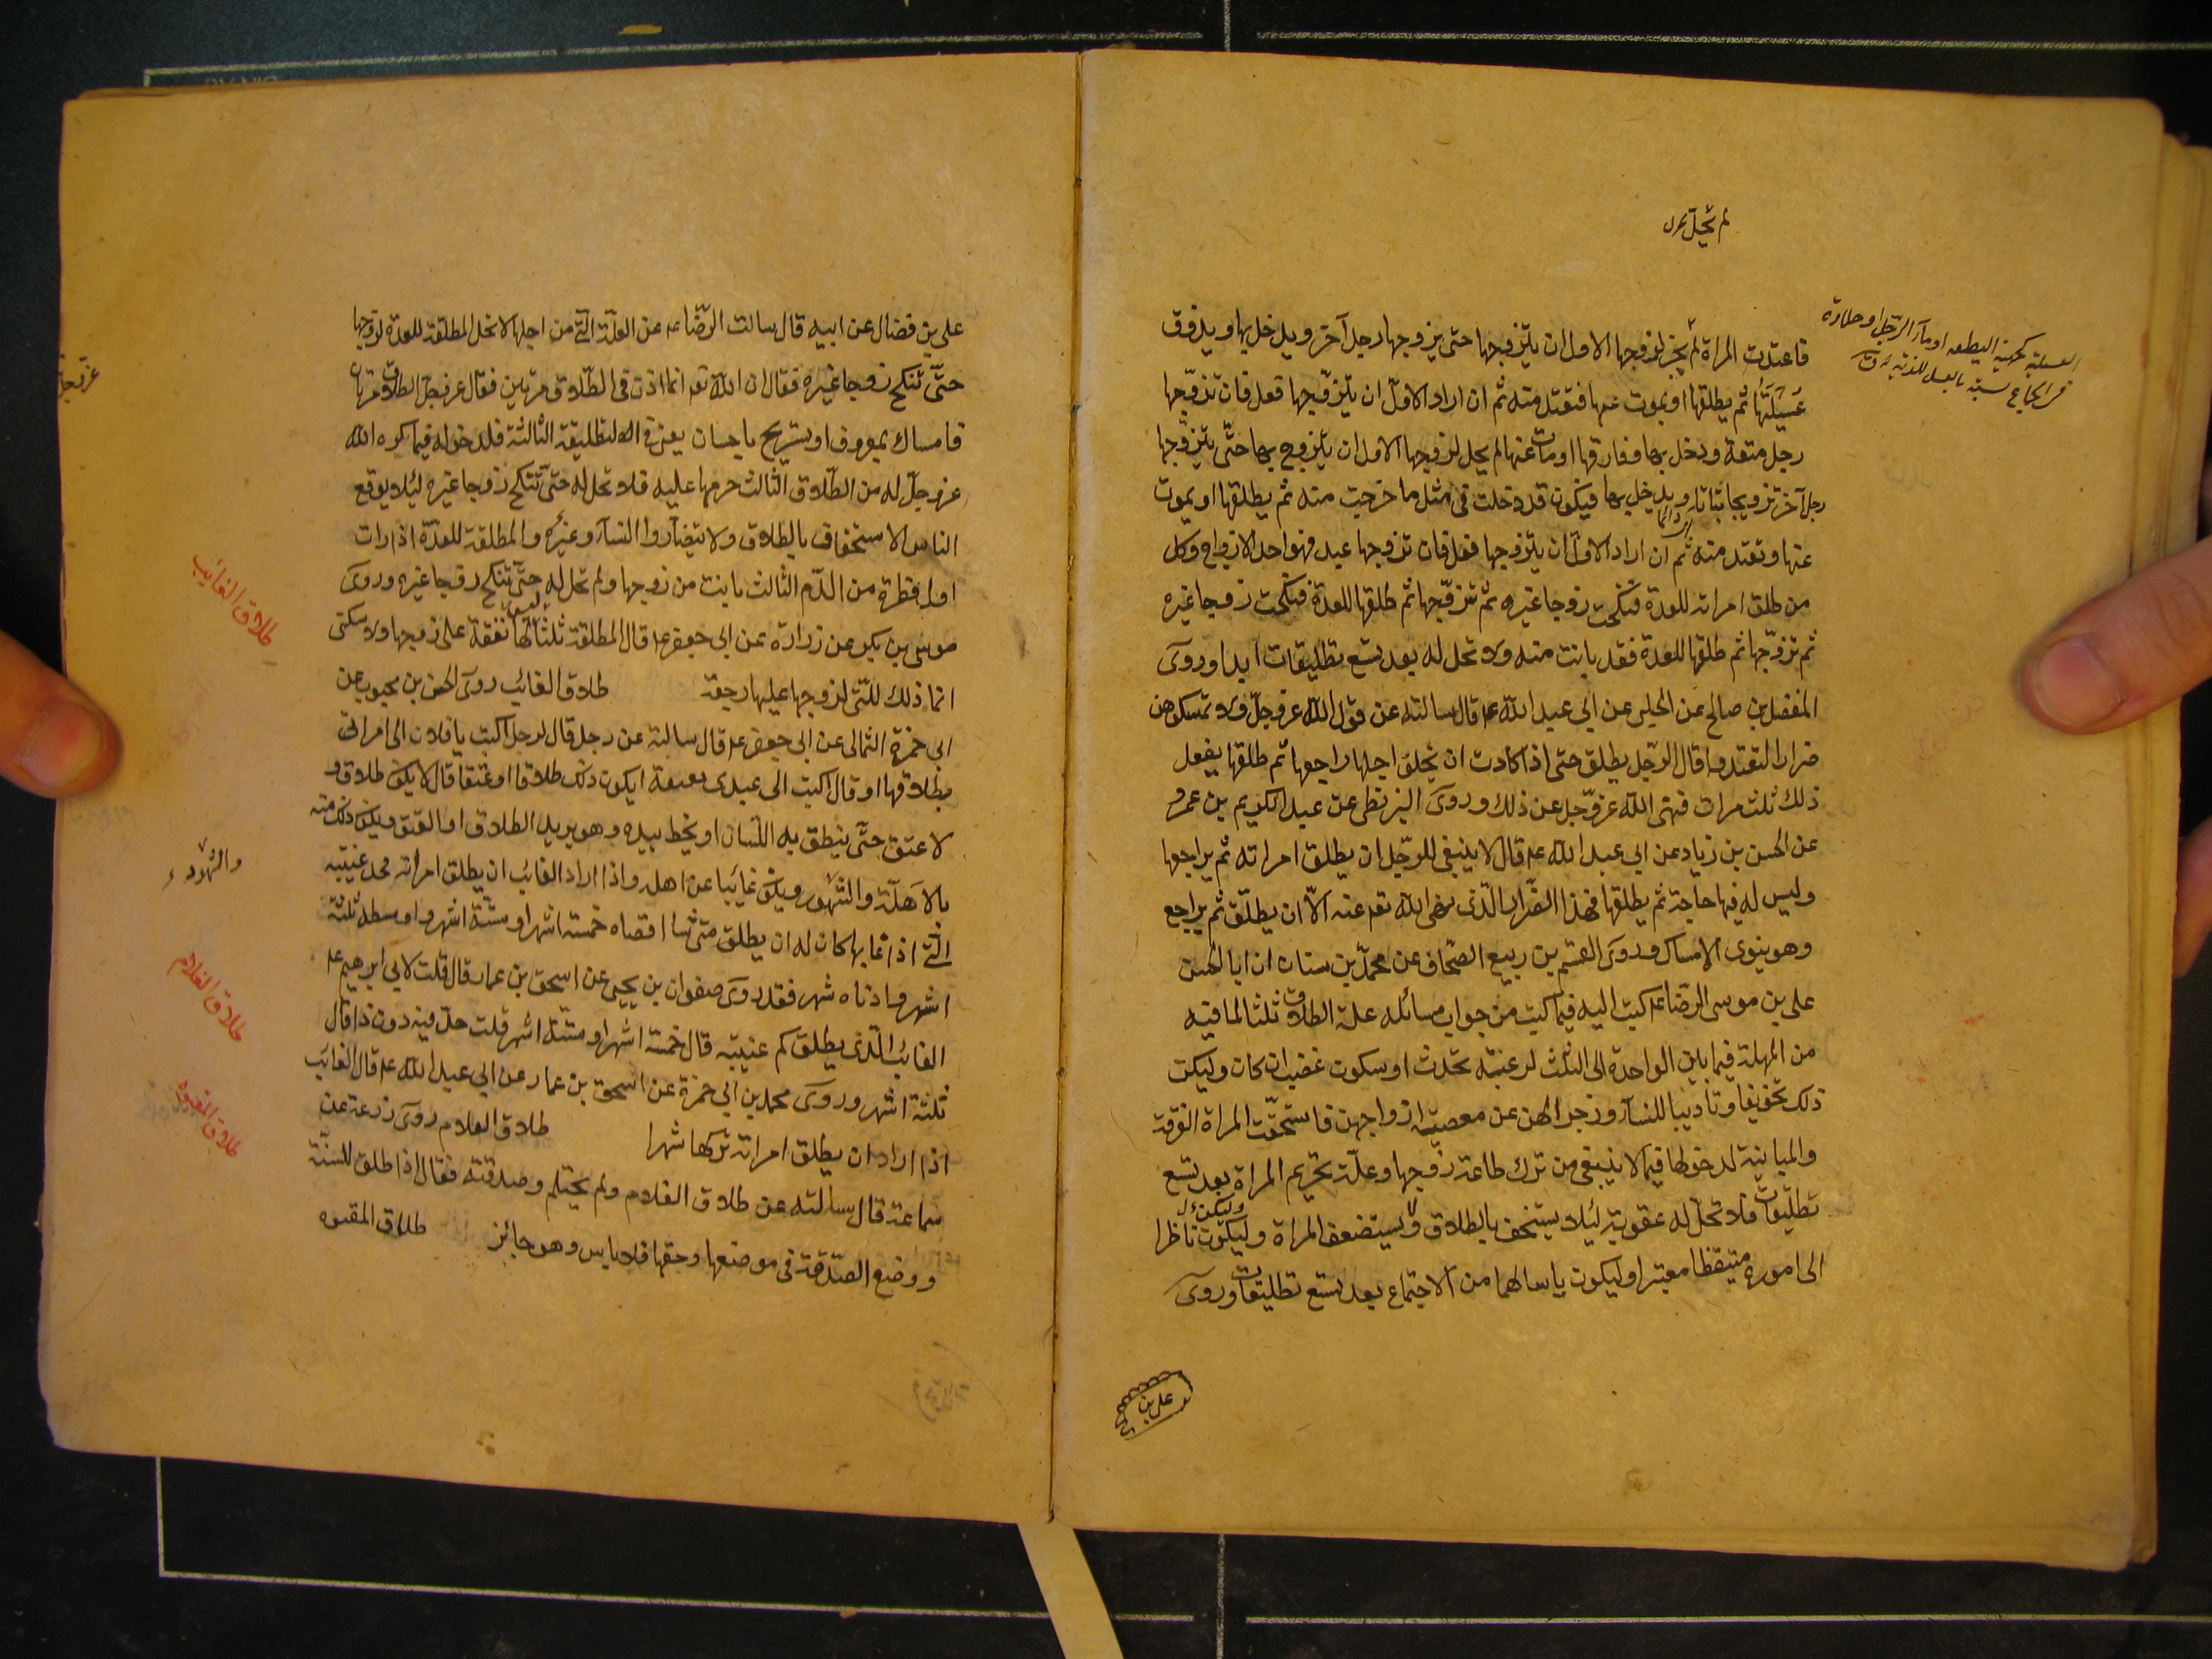 لم تحل
العسيلة كجهينة النطفة او ماء الرجل او حلاوة
الجماع بالعسل للذته ق
فاعتدت المراة لم يجز لزوجها الاول ان يتزوجها حتى يتزوجها رجل آخر ويدخل بها ويذوق
عُسَيلَتَها ثم يطلقها او يموت عنها فتعتد منه ثم ان اراد الاوّل ان يتزوّجها فعل فان تزوّجها
رجل متعة ودخل بها وفارقها او مات عنها لم يحل لزوجها الاول ان يتزوج بها حتّى يتزوّجها
رجل آخر تزويجا بتاتا ويدخل بها فيكون قد دخلت فى مثل ما خرجت منه ثم يطلقها او يموت
عنها وتعتد منه ثم ان اراد الاول ان يتزوجها فعل فان تزوجها عبد فهو احد الازواج وكل
من طلق امراته للعدة فنكحت زوجا غيره ثم تزوّجها ثم طلقها للعدة فنكحت زوجا غيره
ثم تزوّجها ثم طلقها للعدة فقد بانت منه ولا تحل له بعد تسع تطليقات ابدا وروى
المفضل بن صالح عن الحلبى عن ابى عبد الله ع قال سالته عن قول الله عزوجلّ ولا تمسكوهن
ضرارا لتعتدوا قال الرجل يطلق حتى اذا كادت ان يخلو اجلها راجعها ثم طلقها يفعل
ذلك ثلث مرات فنهى الله عزوجل عن ذلك وروى البزنطى عن عبد الكريم بن عمرو
عن الحسن بن زياد عن ابى عبد الله ع قال لا ينبغى للرجل ان يطلق امراته ثم يراجعها
وليس له فيها حاجة ثم يطلقها فهذا الضّرار الّذى نهى الله تعه عنه الّا ان يطلّق ثم يراجع
وهو ينوى الامساك وروى القسم بن ربيع الصّحاف عن محمّد بن سنان ان ابا الحسن
على بن موسى الرضا ع كتب اليه فيما كتب من جواب مسائله علة الطلاق ثلثا لما فيه
من المهلة فيما بين الواحدة الى الثلث لرغبة تحدث او سكون غضب ان كان وليكن
ذلك تخويفا وتاديبا للنسآء وزجرا لهن عن معصية ازواجهن فاستحقّت المراة الفرقة
والمباينة لدخولها فيما لا ينبغى من ترك طاعة زوجها وعلّة تحريم المراة بعد تسع
تطليقات فلا تحلّ له عقوبة لئلا يستخف بالطلاق ولا يستضعف المراة وليكون ناظرا
وليكن
الى اموره متيقظا معتبرا وليكون ياسا لهما من الاجتماع بعد تسع تطليقات وروى
على بن
على بن فضال عن ابيه قال سالت الرّضا ع عن العلّة الّتى من اجلها لا تحل المطلقة للعدّة لزوجها
حتّى تنكح زوجا غيره فقال ان الله تعه انما اذن فى الطّلاق مرتين فقال عزوجل الطلاق مرتان
عزوجل
فامساك بمعروف او تسريح باحسان يعنى فى التطليقة الثالثة فلدخوله فيما كره الله
عزوجلّ له من الطّلاق الثّالث حرمها عليه فلا تحل له حتّى تنكح زوجا غيره لئلا يوقع
الناس الاستخفاف بالطلاق ولا تيضآروا النسآء وغيره والمطلقة للعدّة اذا رات
اول قطرة من الدّم الثالث بانت من زوجها ولم تحل له حتّى تنكح زوجا غيره وروى
موسى بن بكر عن زرارة عن ابى جعفر ع قال المطلقة ثلثا ليس لها نفقة على زوجها ولا سكنى
انما ذلك للتى لزوجها عليها رجعة طلاق الغائب روى الحسن بن محبوب عن
طلاق الغائب
ابى حمزة الثمالى عن ابى جعفر ع قال سالته عن رجل قال لرجل اكتب يا فلان الى امراتى
بطلاقها او قال اكتب الى عبدى بعتقه ايكون ذلك طلاقا او عتقا قال لا يكون طلاق و
لا عتق حتّى ينطق به اللّسان او يخط بيده وهو يريد الطلاق او العتق ويكون ذلك منه
بالاهلّة والشهور ويكون غائبا عن اهله واذا اراد الغائب ان يطلق امراته فحد غيبته
والشهود
الّتى اذا غابها كان له ان يطلق متى شا اقصاه خمسة اشهر او ستّة اشهر واوسطه ثلثة
اشهر وادناه شهر فقد روى صفوان بن يحيى عن اسحق بن عمار قال قلت لابى ابرهيم ع
الغائب الّذى يطلق كم غيبته قال خمسة اشهر او ستّة اشهر قلت حدّ فيه دون ذا قال
ثلثة اشهر وروى محمد بن ابى حمزة عن اسحق بن عمار عن ابى عبد الله ع قال الغائب
اذا اراد ان يطلق امراته تركها شهرا طلاق الغلام روى زرعة عن
طلاق الغلام
سماعة قال سالته عن طلاق الغلام ولم يحتلم وصدقته فقال اذا طلق للسنّة
ووضع الصّدقة فى موضعها وحقها فلا باس وهو جائز طلاق المعتوه
طلاق المعتوه